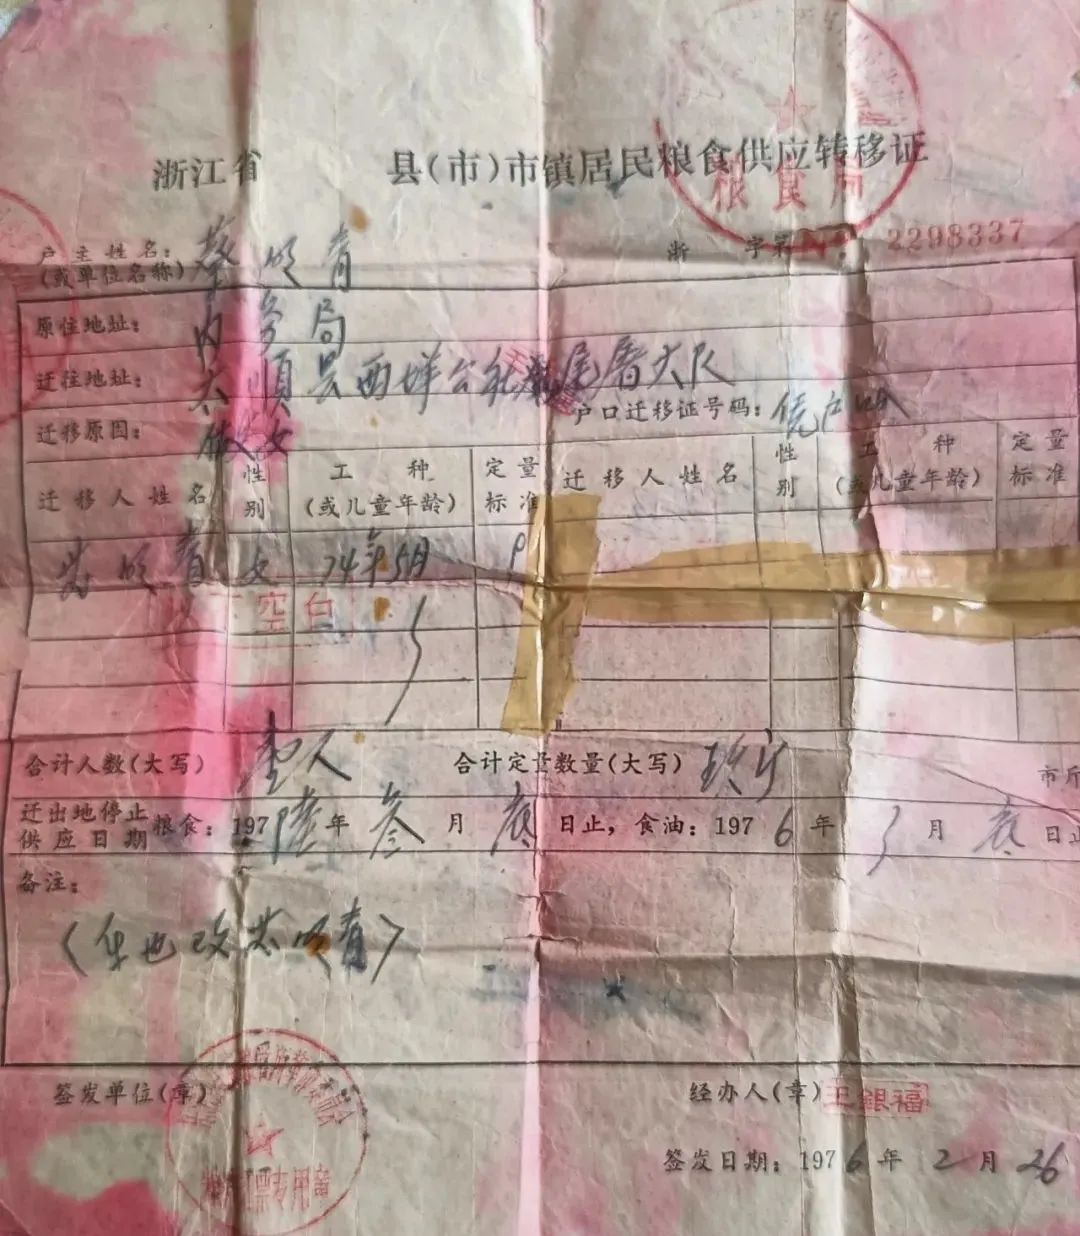 浙江省 县(市)市镇居民粮食供应转移证
粮食局
浙 字第 2298337
户主姓名: 明青
(或单位名称)
原住地址: 局
迁往地址: 太顺县西垟公社 尾 大队
迁移原因: 做 女 户口迁移证号码: 凭户
迁移人姓名 性别 工种(或儿童年龄) 定量标准 迁移人姓名 性别 工种(或儿童年龄) 定量标准
明青 女 74年5月 9
以下空白
合计人数(大写) 壹人 合计定量数量(大写) 玖斤 市斤
迁出地停止供应日期 粮食: 197陆年叁月底日止, 食油: 1976年3月底日止
备注:
改 明青
签发单位(章) 专用章
经办人(章) 王银福
签发日期: 1976年2月26